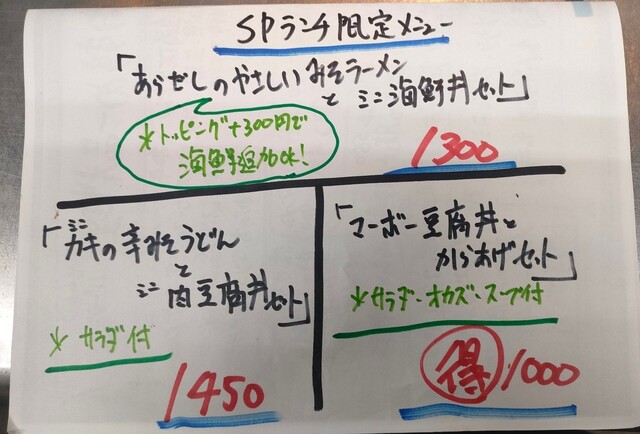 SPランチ限定メニュー
「あらだしのやさしいみそラーメン
と ミニ海鮮丼セット」
*トッピング+300円で
海鮮追加OK!
1300
「ミニカキの辛みそうどん
と
ミニ肉豆腐丼セット」
*サラダ付
1450
「マーボー豆腐丼と
からあげセット」
*サラダ・オカズ・スープ付
得 1000